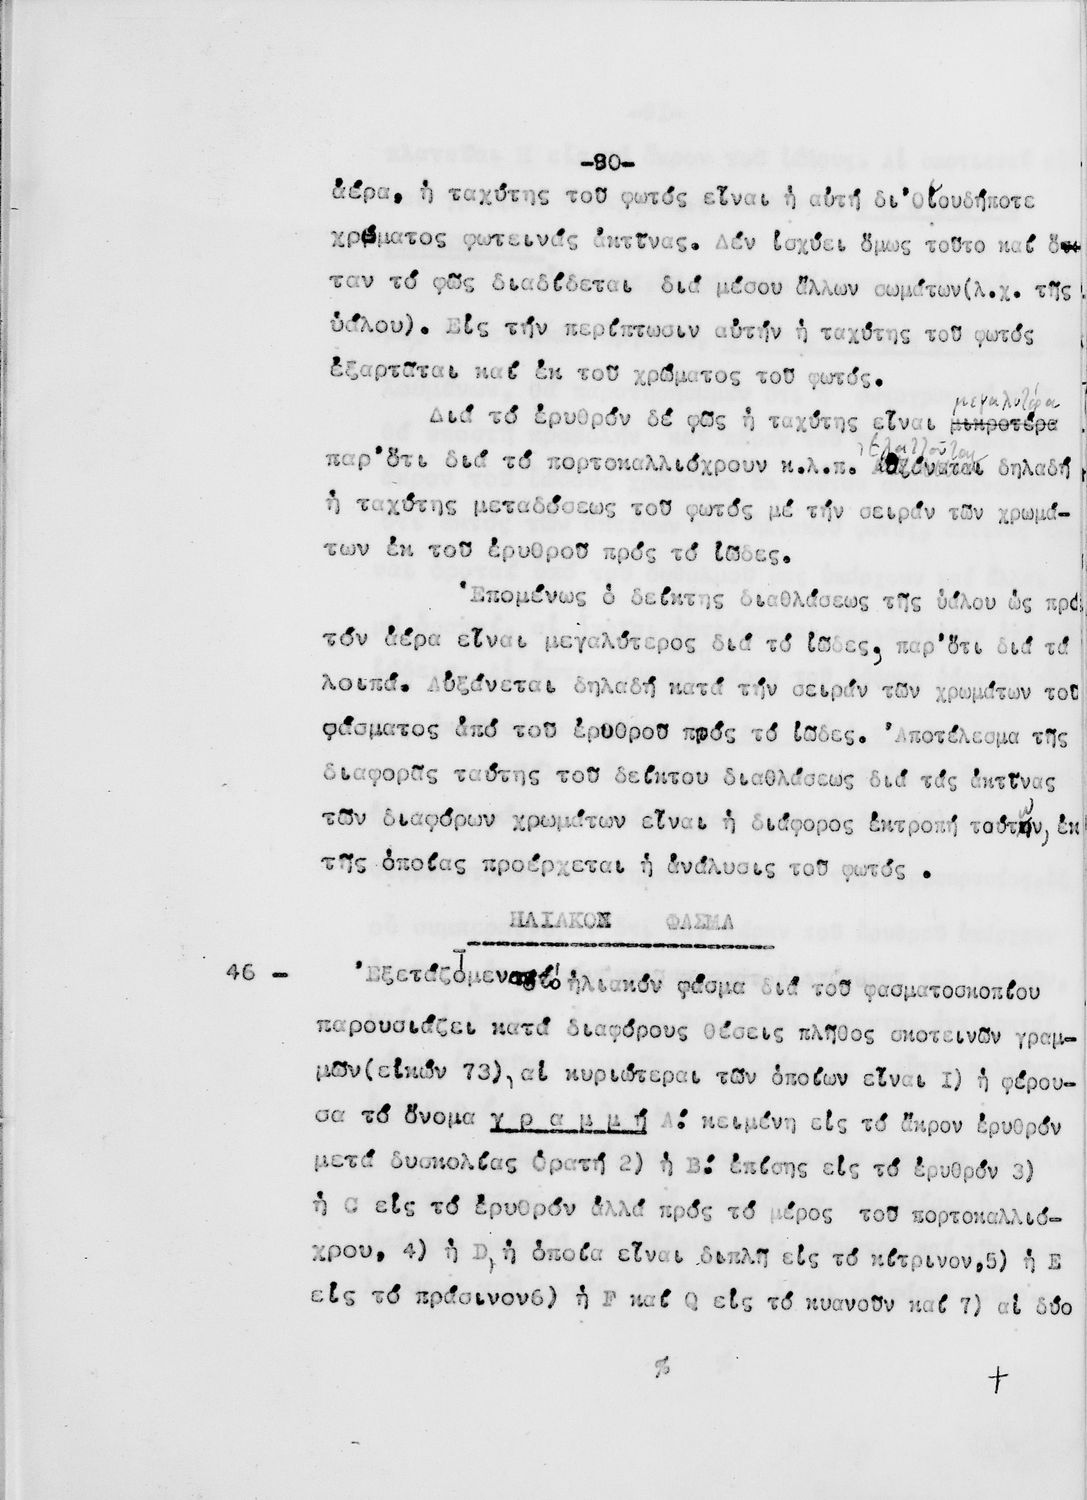 -80-
ἀέρα, ἡ ταχύτης τοῦ φωτός εἶναι ἡ αὐτή δι'οἱουδήποτε
χρώματος φωτεινάς ἀκτῖνας. Δέν ἰσχύει ὅμως τοῦτο καί ὅ-
ταν τό φῶς διαδίδεται διά μέσου ἄλλων σωμάτων(λ.χ. τῆς
ὑάλου). Εἰς τήν περίπτωσιν αὐτήν ἡ ταχύτης τοῦ φωτός
ἐξαρτᾶται καί ἐκ τοῦ χρώματος τοῦ φωτός.
μεγαλυτέρα
Διά τό ἐρυθρόν δέ φῶς ἡ ταχύτης εἶναι μικροτέρα
ἐλαττοῦται
παρ'ὅτι διά τό πορτοκαλλιόχρουν κ.λ.π. Αὐξάνεται δηλαδή
ἡ ταχύτης μεταδόσεως τοῦ φωτός μέ τήν σειράν τῶν χρωμά-
των ἐκ τοῦ ἐρυθροῦ πρός τό ἰῶδες.
'Επομένως ὁ δείκτης διαθλάσεως τῆς ὑάλου ὡς πρό
τόν ἀέρα εἶναι μεγαλύτερος διά τό ἰῶδες, παρ'ὅτι διά τά
λοιπά. Αὐξάνεται δηλαδή κατά τήν σειράν τῶν χρωμάτων τοῦ
φάσματος ἀπό τοῦ ἐρυθροῦ πρός τό ἰῶδες. 'Αποτέλεσμα τῆς
διαφορᾶς ταύτης τοῦ δείκτου διαθλάσεως διά τάς ἀκτῖνας
τῶν διαφόρων χρωμάτων εἶναι ἡ διάφορος ἐκτροπή τούτων, ἐκ
τῆς ὁποίας προέρχεται ἡ ἀνάλυσις τοῦ φωτός .
ΗΛΙΑΚΟΝ ΦΑΣΜΑ
46 - 'Εξεταζόμενον τό ἡλιακόν φάσμα διά τοῦ φασματοσκοπίου
παρουσιάζει κατά διαφόρους θέσεις πλῆθος σκοτεινῶν γραμ-
μῶν(εἰκών 73), αἱ κυριώτεραι τῶν ὁποίων εἶναι Ι) ἡ φέρου-
σα τό ὄνομα γ ρ α μ μ ή Α: κειμένη εἰς τό ἄκρον ἐρυθρόν
μετά δυσκολίας ὁρατή 2) ἡ Β: ἐπίσης εἰς τό ἐρυθρόν 3)
ἡ C εἰς τό ἐρυθρόν ἀλλά πρός τό μέρος τοῦ πορτοκαλλιό-
χρου, 4) ἡ D, ἡ ὁποία εἶναι διπλῆ εἰς τό κίτρινον,5) ἡ E
εἰς τό πράσινον6) ἡ F καί Q εἰς τό κυανοῦν καί 7) αἱ δύο
%
+